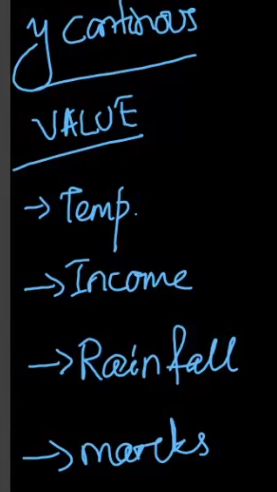 y continous
VALUE
→ Temp.
→ Income
→ Rainfall
→ marks